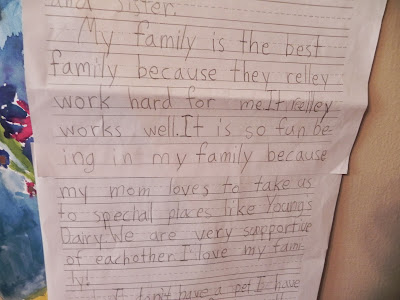 and sister.
My family is the best
family because they relley
work hard for me.It relley
works well.It is so fun be-
ing in my family because
my mom loves to take us
to special places like Young's
Dairy.We are very supportive
of eachother.I love my fami-
ly!
I don't have a pet I have